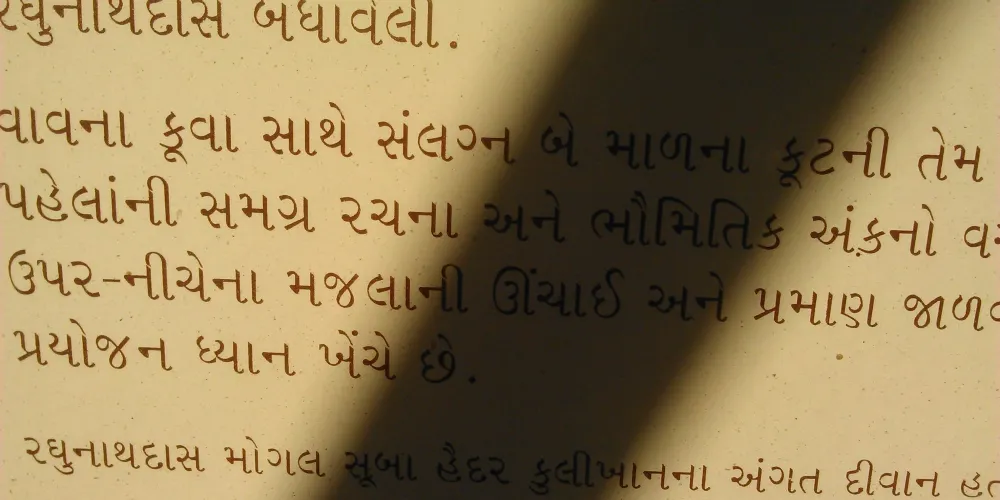 રઘુનાથદાસ બંધાવેલી.
વાવના કૂવા સાથે સંલગ્ન બે માળના કૂટની તેમ
પહેલાંની સમગ્ર રચના અને ભૌમિતિક અંકનો
ઉપર-નીચેના મજલાની ઊંચાઈ અને પ્રમાણ
પ્રયોજન ધ્યાન ખેંચે છે.
રઘુનાથદાસ મોગલ સૂબા હૈદર કુલીખાનના અંગત દીવાન